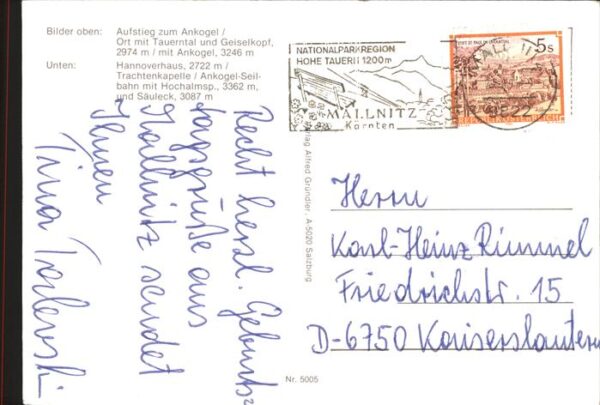 Bilder oben: Aufstieg zum Ankogel /
Ort mit Tauerntal und Geiselkopf,
2974 m / mit Ankogel, 3246 m
Unten: Hannoverhaus, 2722 m /
Trachtenkapelle / Ankogel-Seil-
bahn mit Hochalmsp., 3362 m,
und Säuleck, 3087 m
NATIONALPARKREGION
HOHE TAUERN 1200m
MALLNITZ
Kärnten
5s
Recht herzl. Geburts-
tagsgrüße aus
Mallnitz sendet
Ihnen
Tina
Alfred Gründler, A-5020 Salzburg
Herrn
Karl-Heinz Rümmel
Friedrichstr. 15
D-6750 Kaiserslautern
Nr. 5005